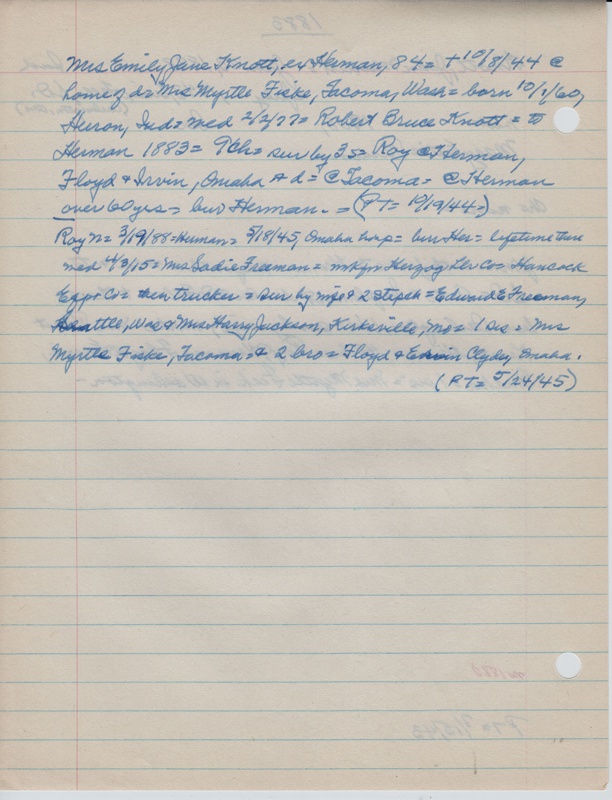 Mrs Emily Jane Knott, ex Herman, 84 = + 10/8/44 @
home of d = Mrs Myrtle Fiske, Tacoma, Wash = born 10/1/60,
Huron, Ind = med 2/2/77 = Robert Bruce Knott = to
Herman 1883 = 9ch = sur by 3s = Roy @ Herman,
Floyd & Irvin, Omaha & d = @ Tacoma = @ Herman
over 60 yrs = bur Herman. = (PT = 10/19/44 =)
Roy n = 3/19/88 = Herman = 5/18/45, Omaha hosp = bur Her = lifetime there
med 4/3/15 = Mrs Sadie Freeman = mkgn Herzog Lbr Co = Hancock
Egg & Co = then trucker = sur by wife & 2 stepch = Edward E Freeman,
Seattle, Was & Mrs Harry Jackson, Kirksville, Mo = 1 sis = Mrs
Myrtle Fiske, Tacoma = & 2 bro = Floyd & Erwin Clyde, Omaha.
(PT = 5/24/45)